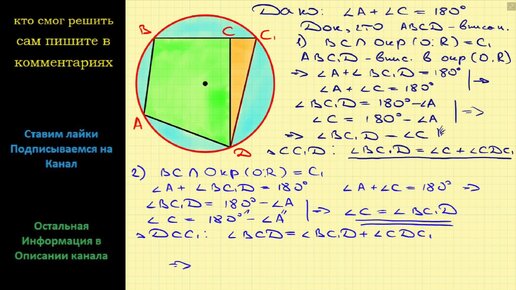 кто смог решить
сам пишите в
комментариях
Ставим лайки
Подписываемся на
Канал
Остальная
Информация в
Описании канала
B
C
C₁
A
D
Дано: ∠A + ∠C = 180°
Док, что ABCD - впис.
1) BC ∩ Окр (O; R) = C₁
ABC₁D - впис. в окр (O; R)
⇒ ∠A + ∠BC₁D = 180°
∠A + ∠C = 180° | ⇒
∠BC₁D = 180° - ∠A
∠C = 180° - ∠A | ⇒
⇒ ∠BC₁D = ∠C
△CC₁D: ∠BC₁D = ∠C + ∠CDC₁
2) BC ∩ Окр (O; R) = C₁
∠A + ∠BC₁D = 180° ∠A + ∠C = 180° ⇒
∠BC₁D = 180° - ∠A
∠C = 180° - ∠A | ⇒ ∠C = ∠BC₁D
△DCC₁: ∠BCD = ∠BC₁D + ∠CDC₁
⇒